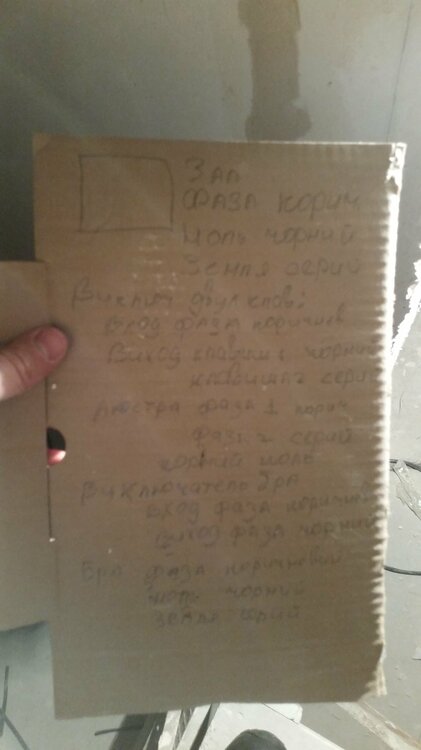 Зал
Фаза корич
Ноль чорний
Земля серий
Выключ двухклав:
Вход фаза коричнев
Виход клавиша 1 чорний
клавиша 2 серий
Люстра фаза 1 корич
фаза 2 серий
чорний ноль
Виключатель бра
Вход фаза коричнев
Виход фаза чорний
Бра фаза коричневий
ноль чорний
земля серий